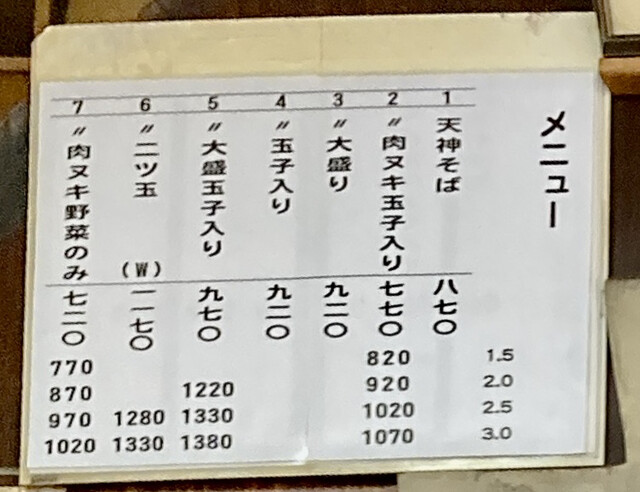 メニュー
1.5
2.0
2.5
3.0
1 天神そば 八七〇
2 〃肉ヌキ玉子入り 七七〇
820
920
1020
1070
3 〃大盛り 九二〇
4 〃玉子入り 九二〇
5 〃大盛玉子入り 九七〇
1220
1330
1380
6 〃二ツ玉 (W) 一一七〇
1280
1330
7 〃肉ヌキ野菜のみ 七二〇
770
870
970
1020